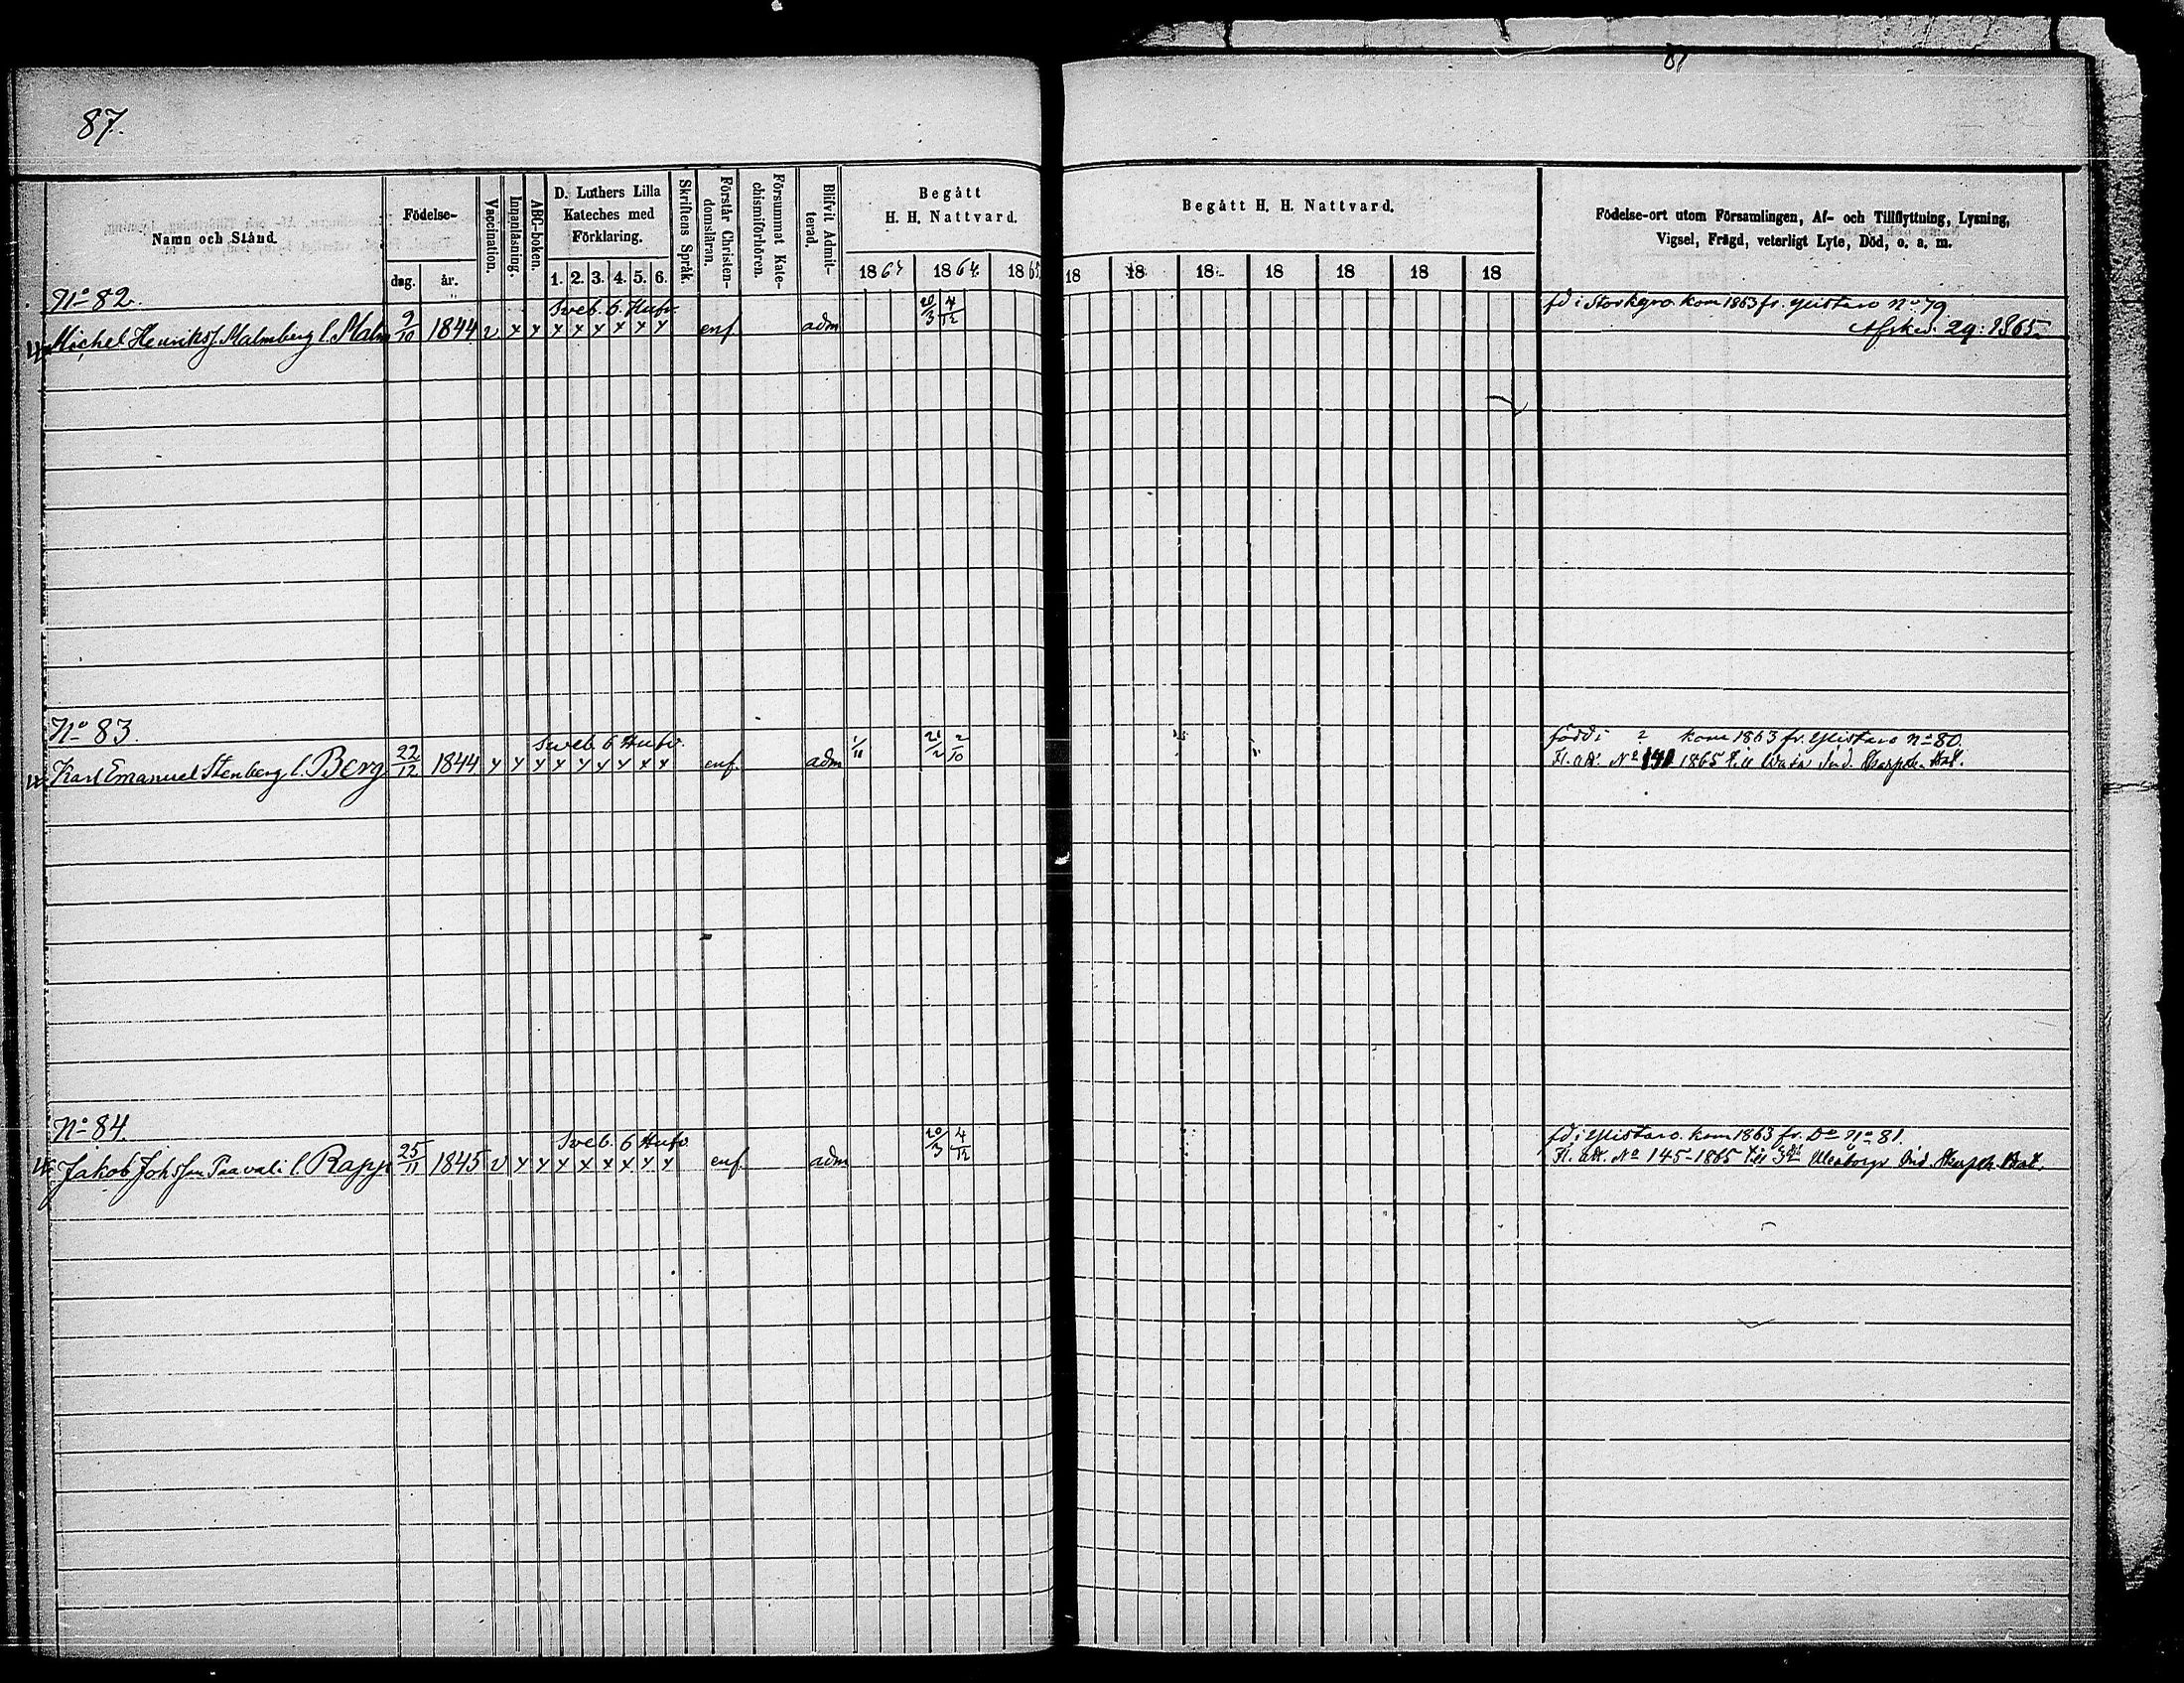 81
87.
Namn och Stånd.
Födelse-
dag. år.
Vaccination.
Innanläsning.
ABC-boken.
D. Luthers Lilla
Kateches med
Förklaring.
1. 2. 3. 4. 5. 6.
Skriftens Språk.
Förstår Christen-
domsläran.
Försummat Kate-
chismiförhören.
Blifvit Admit-
terad.
Begått
H. H. Nattvard.
1863 1864 1865
Begått H. H. Nattvard.
18 18 18 18 18 18 18
Födelse-ort utom Församlingen, Af- och Tillflyttning, Lysning,
Vigsel, Frägd, veterligt Lyte, Död, o. a. m.
No 82. Sveb. 6. Hufv. 20/3 4/12 fd i Storkyro kom 1863 fr. Ylistaro No 79
Michel Henriks f. Malmberg l. Malm 9/10 1844 v x x x x x x x x enf adm Afsked. 29: 1865.
No 83. Sveb. 6 Hufv. 1/11 21/2 2/10 född i ? kom 1863 fr. Ylistaro No 80.
Karl Emanuel Stenberg l. Berg 22/12 1844 x x x x x x x x x enf adm Fl. att. No 141 1865 till Wasa Ind. Skarpsk. Bat.
No 84. Sveb. 6 Hufv. 20/3 4/12 fd i Ylistaro. kom 1863 fr. Do No 81.
Jakob Johs son Paavali l. Rapp 25/11 1845 v x x x x x x x x enf adm Fl. att. No 145-1865 till Uleåborgs Ind. Skarpsk. Bat.